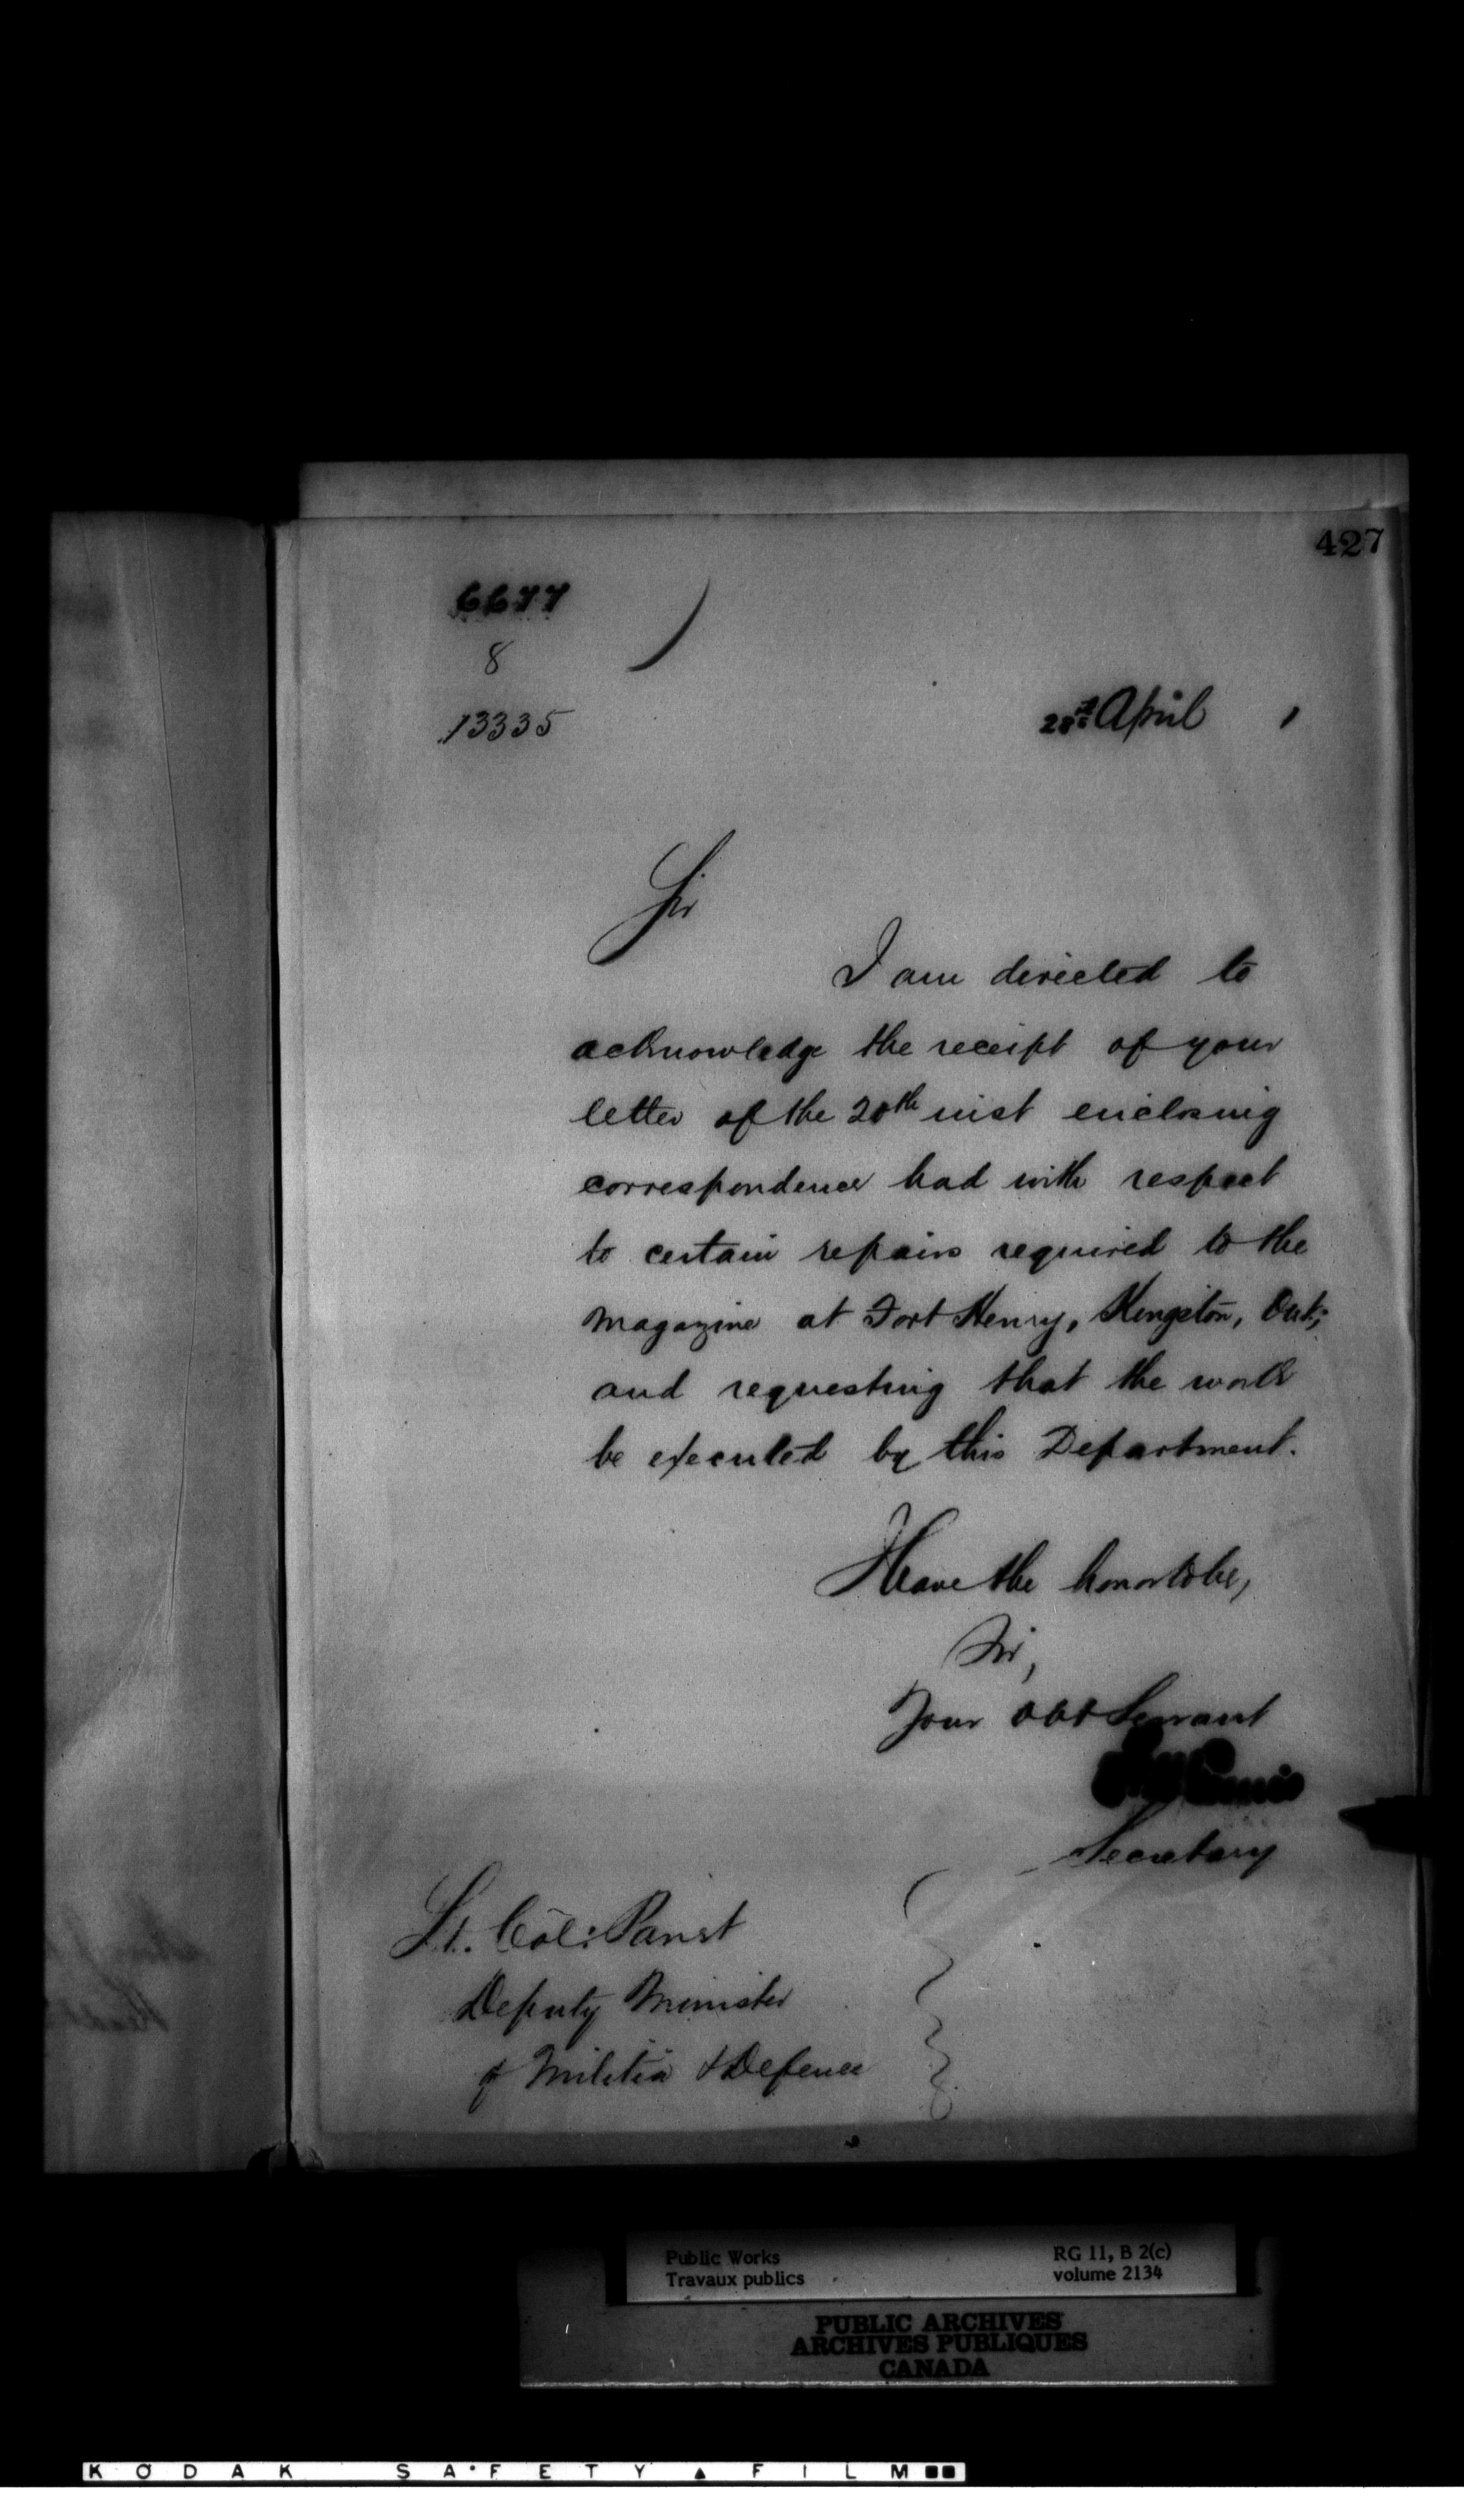 427
6677
8
13335
April
Sir
I am directed to
acknowledge the receipt of your
letter of the 20th inst enclosing
correspondence had with respect
to certain repairs required to the
Magazine at Fort Henry, Kingston, Ont;
and requesting that the work
be executed by this Department.
I have the honor to be,
Sir,
Your obt Servant
Secretary
Lt. Col: Panet
Deputy Minister
of Militia & Defence
Public Works RG 11, B 2(c)
Travaux publics volume 2134
PUBLIC ARCHIVES
ARCHIVES PUBLIQUES
CANADA
KODAK SAFETY FILM